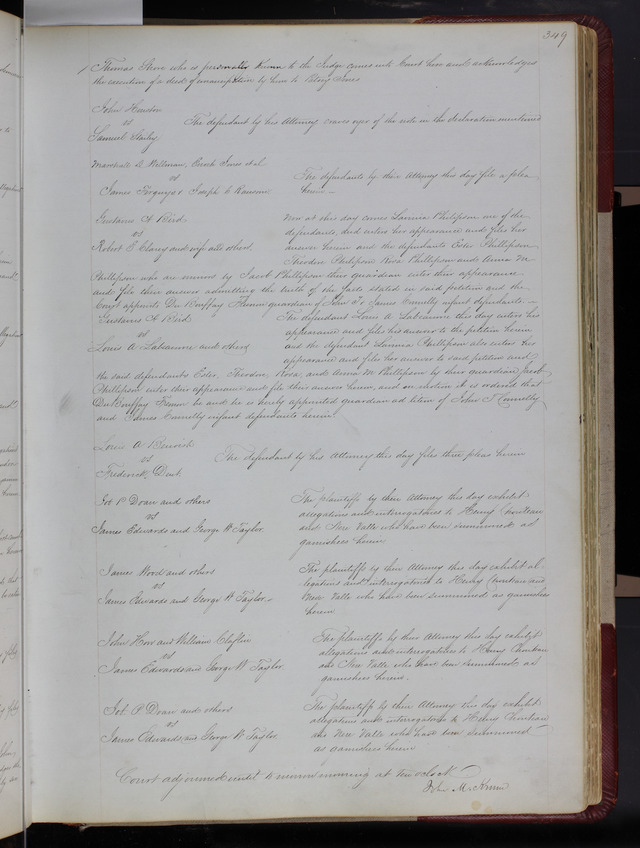 349
Thomas Shore who is personally known to the Judge comes into Court here and acknowledges
the execution of a deed of emancipation by him to Jones
John
vs
Samuel
The defendant by his Attorney craves oyer of the note in the declaration mentioned
Marshall Enoch Jones et al
vs
James Ferguson & Joseph C Ransom
The defendants by their Attorney this day file a plea
herein
Gustavus A Bird
vs
Robert E Clary and wife and others
Now at this day comes Lavinia Phillipson one of the
defendants, and enters her appearance and files her
answer herein and the defendants Ester Phillipson
Theodore Phillipson Rosa Phillipson and Anna M
Phillipson who are minors by Jacob Phillipson their guardian enter their appearance
and file their answer admitting the truth of the facts stated in said petition and the
Court appoints Du Bouffay Fremon guardian of John & James Connelly infant defendants.
Gustavus A Bird
vs
Louis A. Labeaume and others
The defendant Louis A. Labeaume this day enters his
appearance and files his answer to the petition herein
and the defendant Lavinia Phillipson also enters her
appearance and files her answer to said petition and
the said defendants Ester, Theodore, Rosa, and Anna M Phillipson by their guardian Jacob
Phillipson enter their appearance and file their answer herein, and on motion it is ordered that
Du Bouffay Fremon be and he is hereby appointed guardian ad litem of John Connelly
and James Connelly infant defendants herein
Louis A Benoist
vs
Frederick Dent
The defendant by his Attorney this day files three pleas herein
Jot P Doan and others
vs
James Edwards and George W Taylor
The plaintiffs by their Attorney this day exhibit
allegations and interrogatories to Henry Chouteau
and Nere Valle who have been summoned as
garnishees herein.
James Wood and others
vs
James Edwards and George W Taylor
The plaintiffs by their Attorney this day exhibit al-
legations and interrogatories to Henry Chouteau and
Nere Valle who have been summoned as garnishees
herein
John How and William Claflin
vs
James Edwards and George W Taylor
The plaintiffs by their Attorney this day exhibit
allegations and interrogatories to Henry Chouteau
and Nere Valle who have been summoned as
garnishees herein.
Jot. P. Doan and others
vs
James Edwards, and George W Taylor
The plaintiffs by their Attorney this day exhibit
allegations and interrogatories to Henry Chouteau
and Nere Valle who have been summoned
as garnishees herein
Court adjourned until tomorrow morning at ten oclock